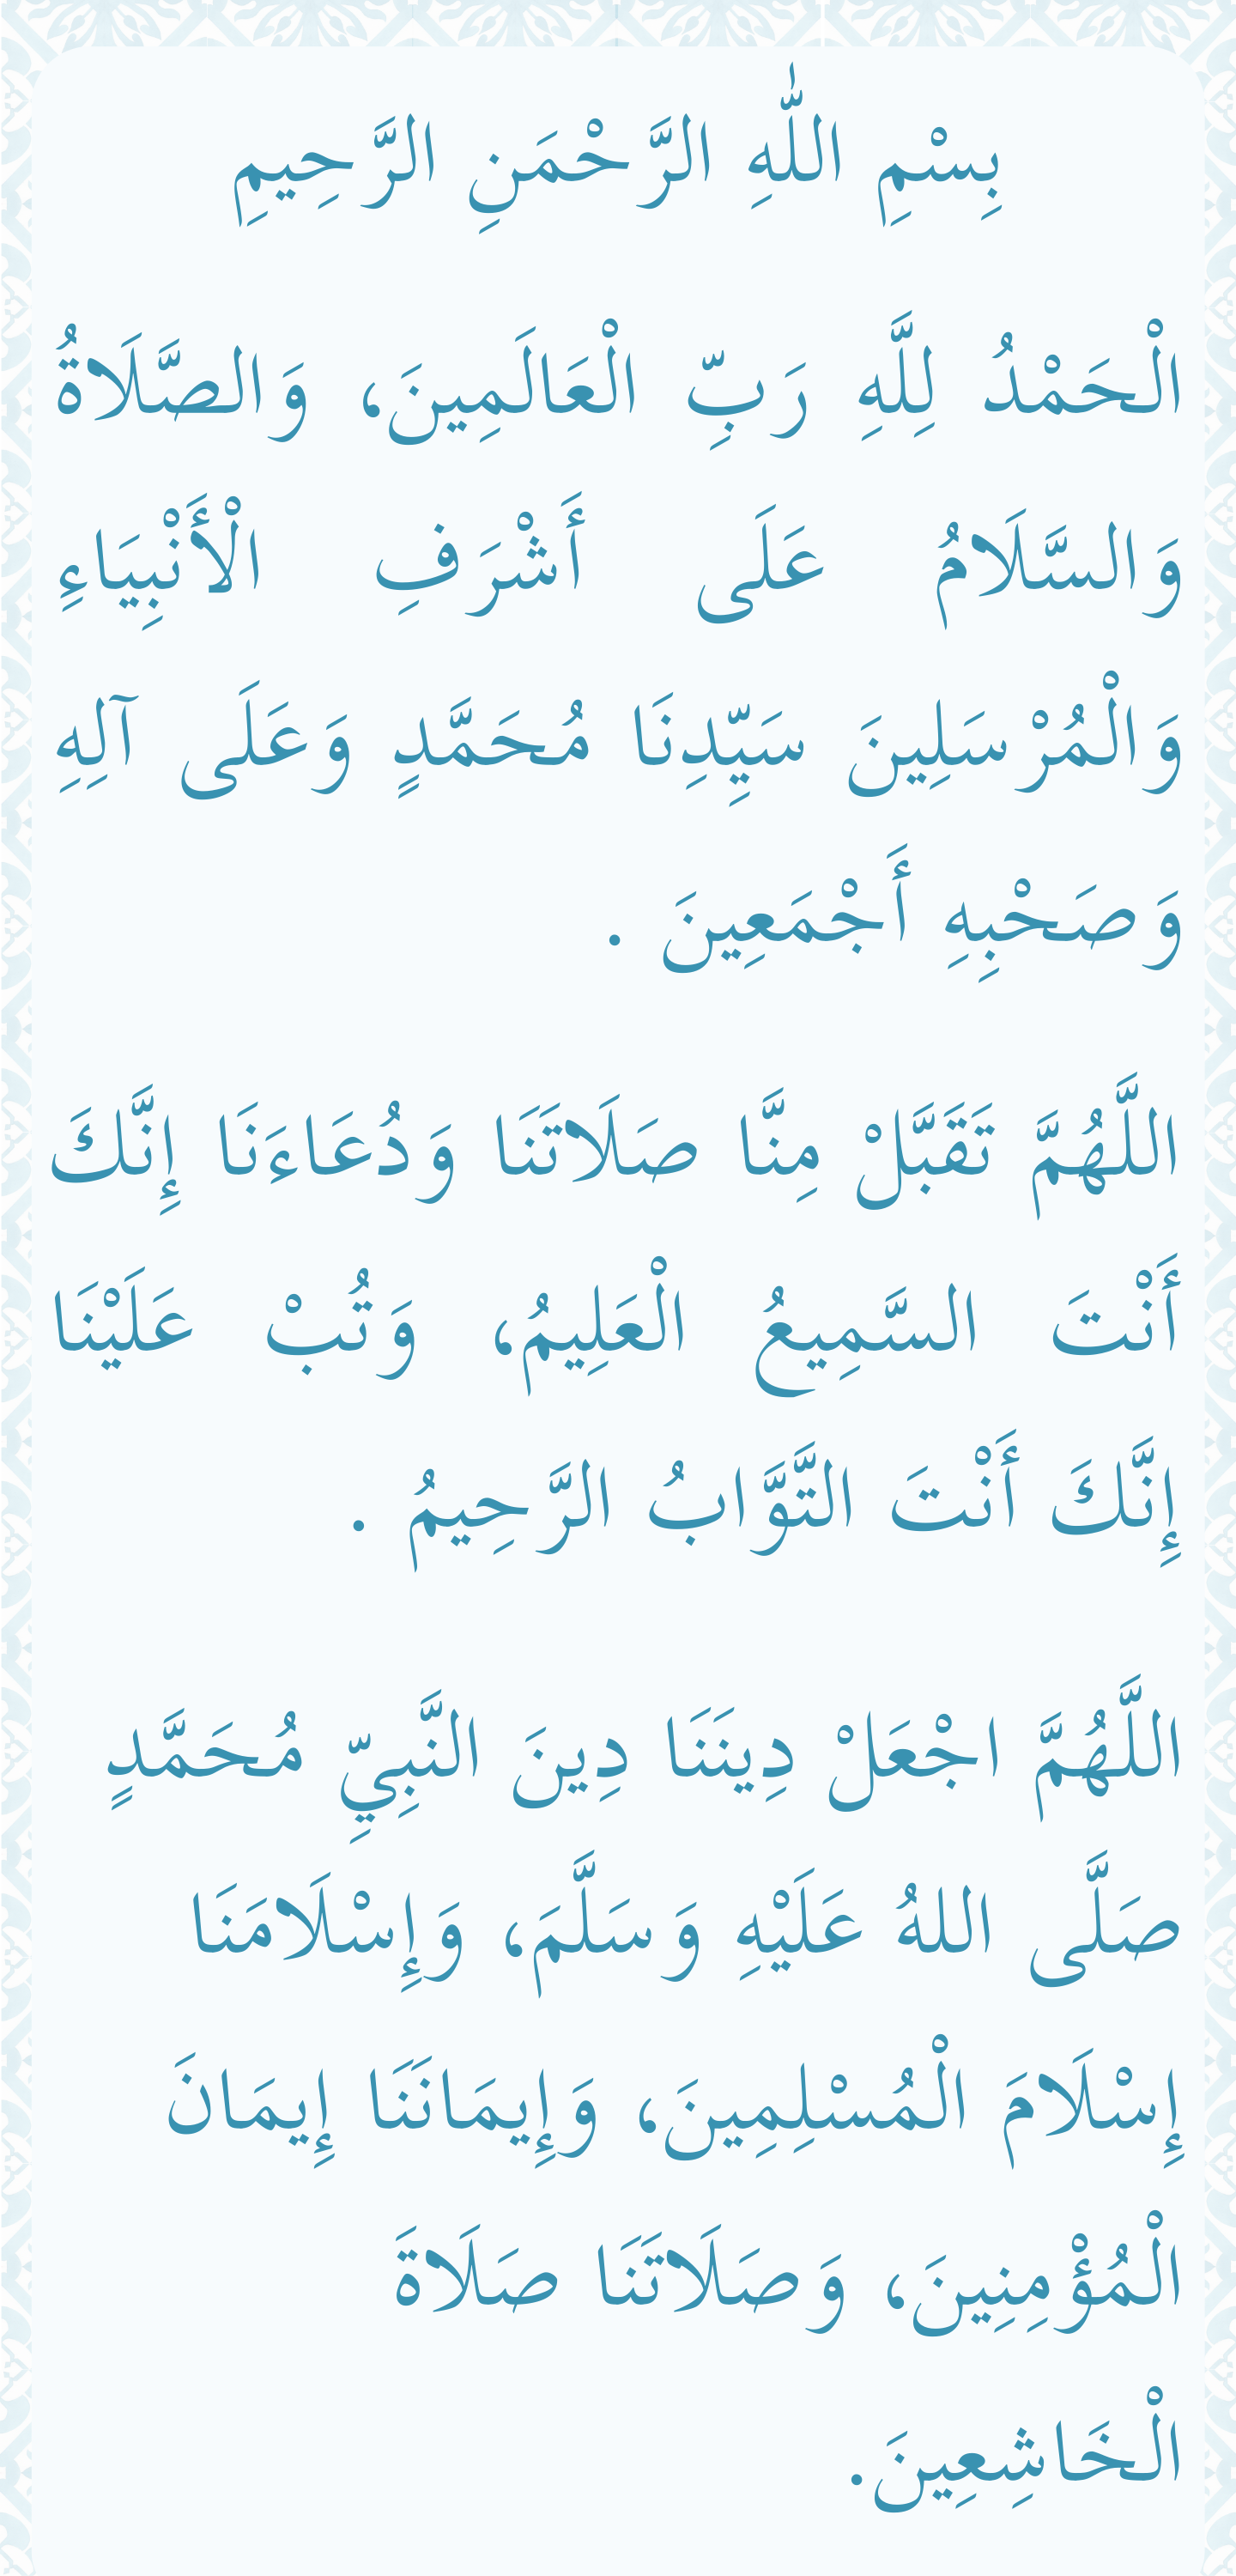 بِسْمِ اللّٰهِ الرَّحْمَنِ الرَّحِيمِ
الْحَمْدُ لِلَّهِ رَبِّ الْعَالَمِينَ، وَالصَّلَاةُ
وَالسَّلَامُ عَلَى أَشْرَفِ الْأَنْبِيَاءِ
وَالْمُرْسَلِينَ سَيِّدِنَا مُحَمَّدٍ وَعَلَى آلِهِ
وَصَحْبِهِ أَجْمَعِينَ .
اللَّهُمَّ تَقَبَّلْ مِنَّا صَلَاتَنَا وَدُعَاءَنَا إِنَّكَ
أَنْتَ السَّمِيعُ الْعَلِيمُ، وَتُبْ عَلَيْنَا
إِنَّكَ أَنْتَ التَّوَّابُ الرَّحِيمُ .
اللَّهُمَّ اجْعَلْ دِينَنَا دِينَ النَّبِيِّ مُحَمَّدٍ
صَلَّى اللهُ عَلَيْهِ وَسَلَّمَ، وَإِسْلَامَنَا
إِسْلَامَ الْمُسْلِمِينَ، وَإِيمَانَنَا إِيمَانَ
الْمُؤْمِنِينَ، وَصَلَاتَنَا صَلَاةَ
الْخَاشِعِينَ.